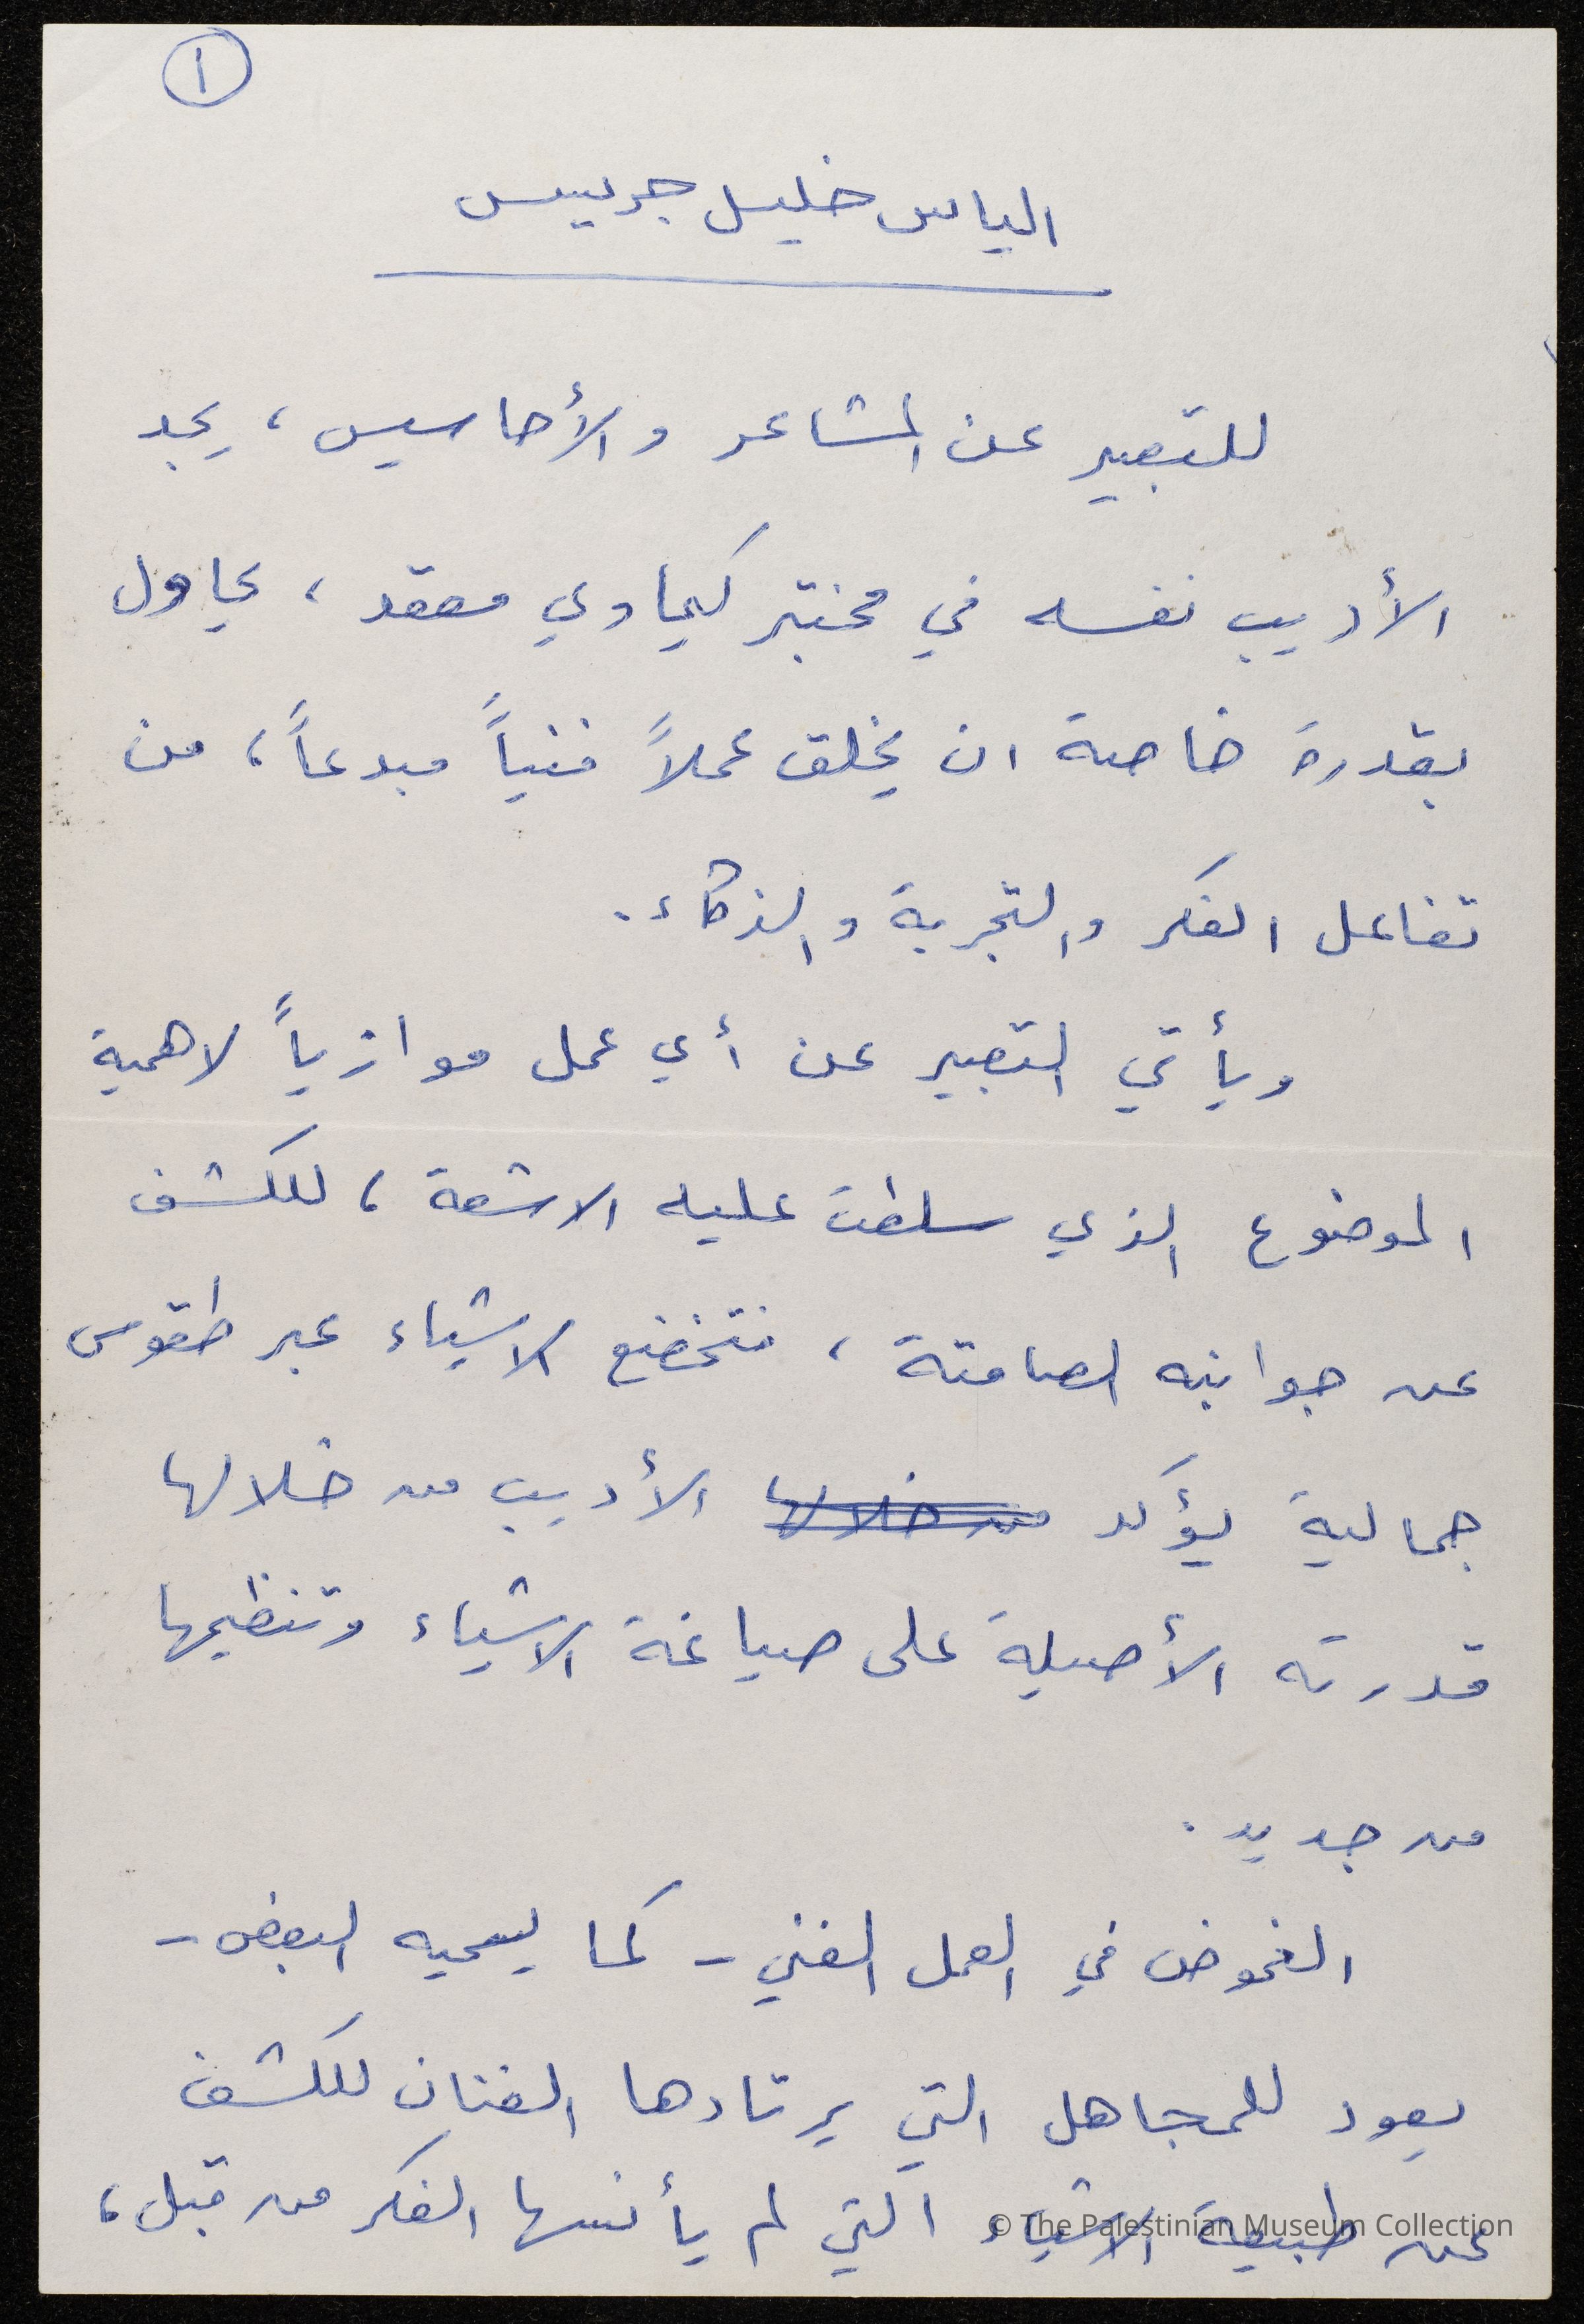 ١
الياس خليل جريس
للتعبير عن المشاعر والأحاسيس، يجد
الأديب نفسه في مختبر كيماوي معقد، يحاول
بقدرة خاصة ان يخلق عملاً فنياً مبدعاً، من
تفاعل الفكر والتجربة والذكاء.
ويأتي التعبير عن أي عمل موازياً لاهمية
الموضوع الذي سلطت عليه الاشعة، للكشف
عن جوانبه الصامتة، فتخضع الاشياء عبر طقوس
جمالية يؤكد من خلالها الأديب من خلالها
قدرته الأصيلة على صياغة الاشياء وتنظيمها
من جديد.
الغموض في العمل الفني - كما يسميه البعض -
يعود للمجاهل التي يرتادها الفنان للكشف
عن طبيعة الاشياء التي لم يأنسها الفكر من قبل،
© The Palestinian Museum Collection